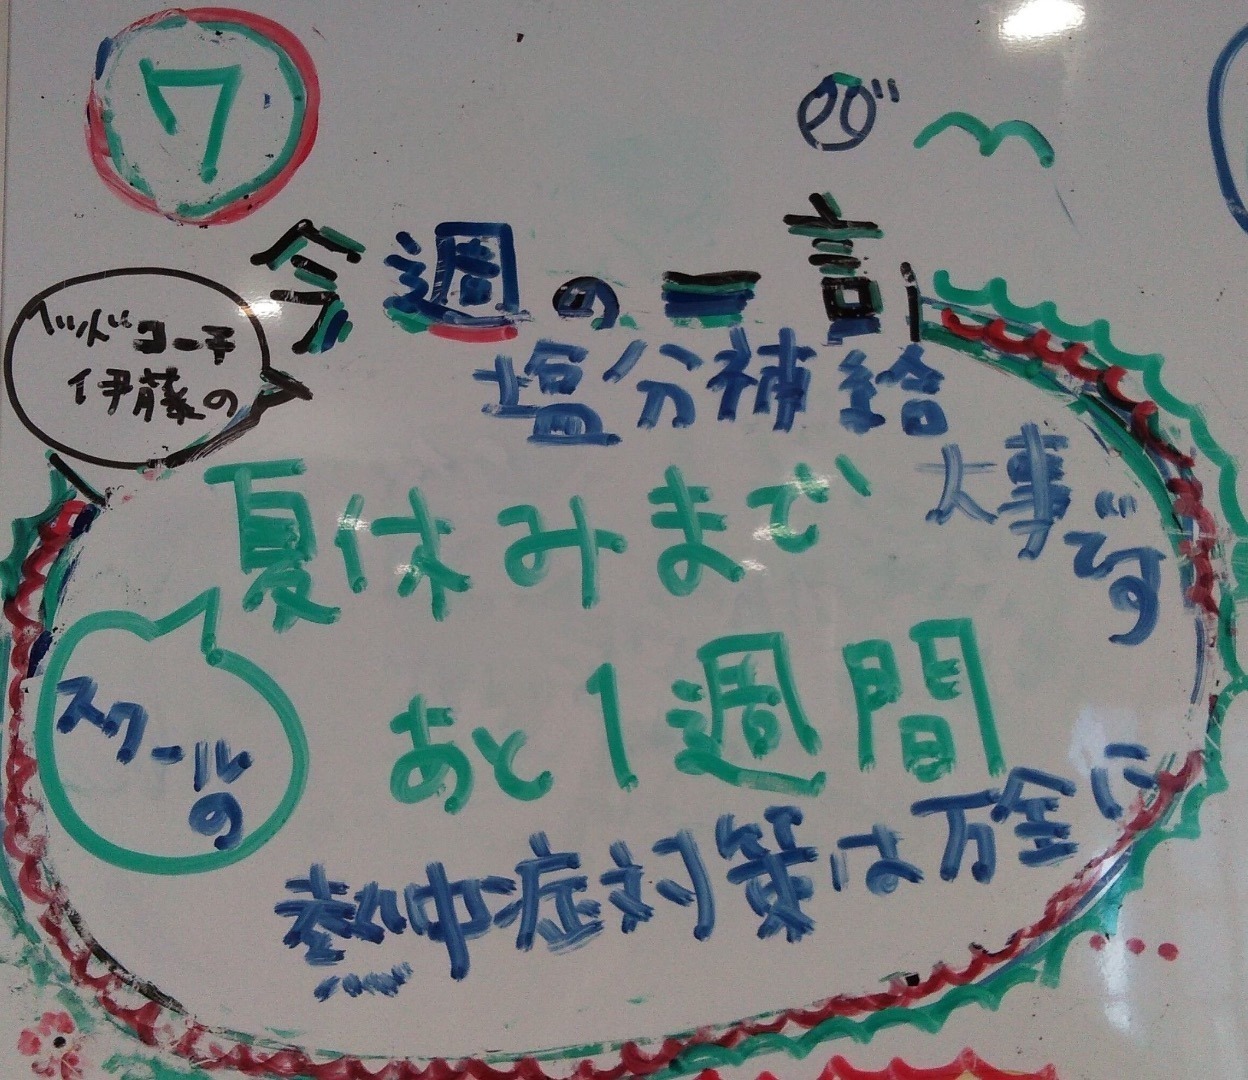 7
今週の一言
ヘッドコーチ
伊藤の
塩分補給
大事です
夏休みまで
あと1週間
スクールの
熱中症対策は万全に